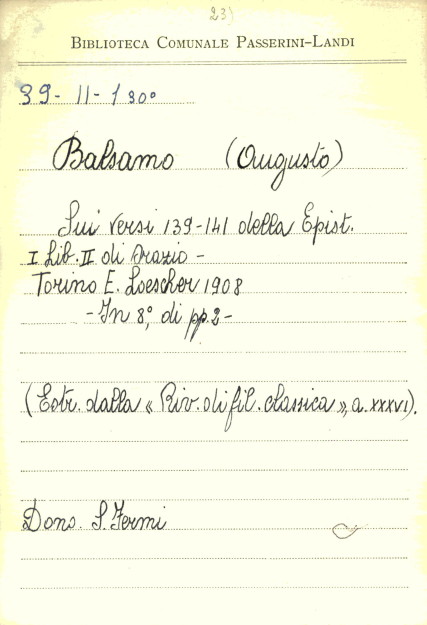 23)
BIBLIOTECA COMUNALE PASSERINI-LANDI
39-11-130°
Balsamo (Augusto)
Sui versi 139-141 della Epist.
I Lib. II di Orazio -
Torino E. Loescher 1908
- In 8°, di pp. 2 -
(Estr. dalla « Riv. di fil. classica », a. XXXVI).
Dono S. Fermi